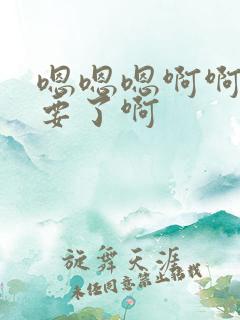 嗯嗯嗯啊啊
要了啊
旋舞天涯
未经同意禁止转载